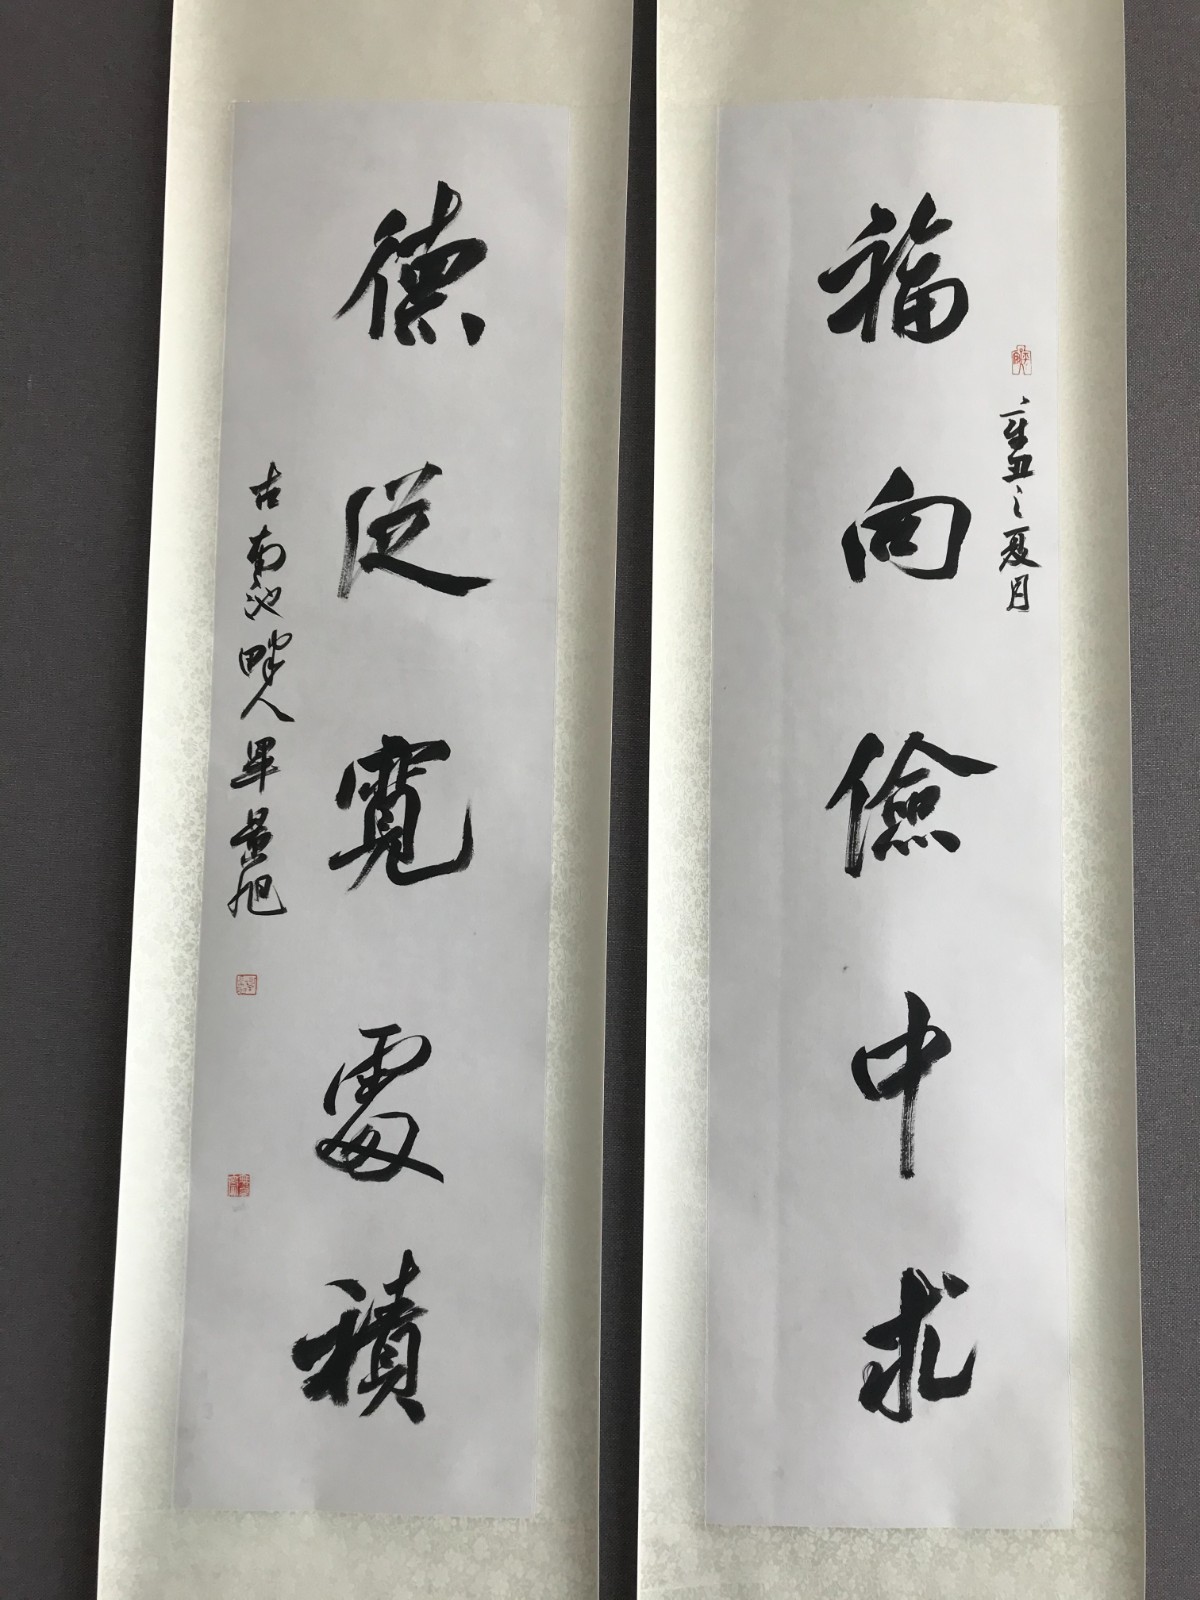 福向儉中求
辛丑之夏月
德從寬處積
古南池畔人畢景旭